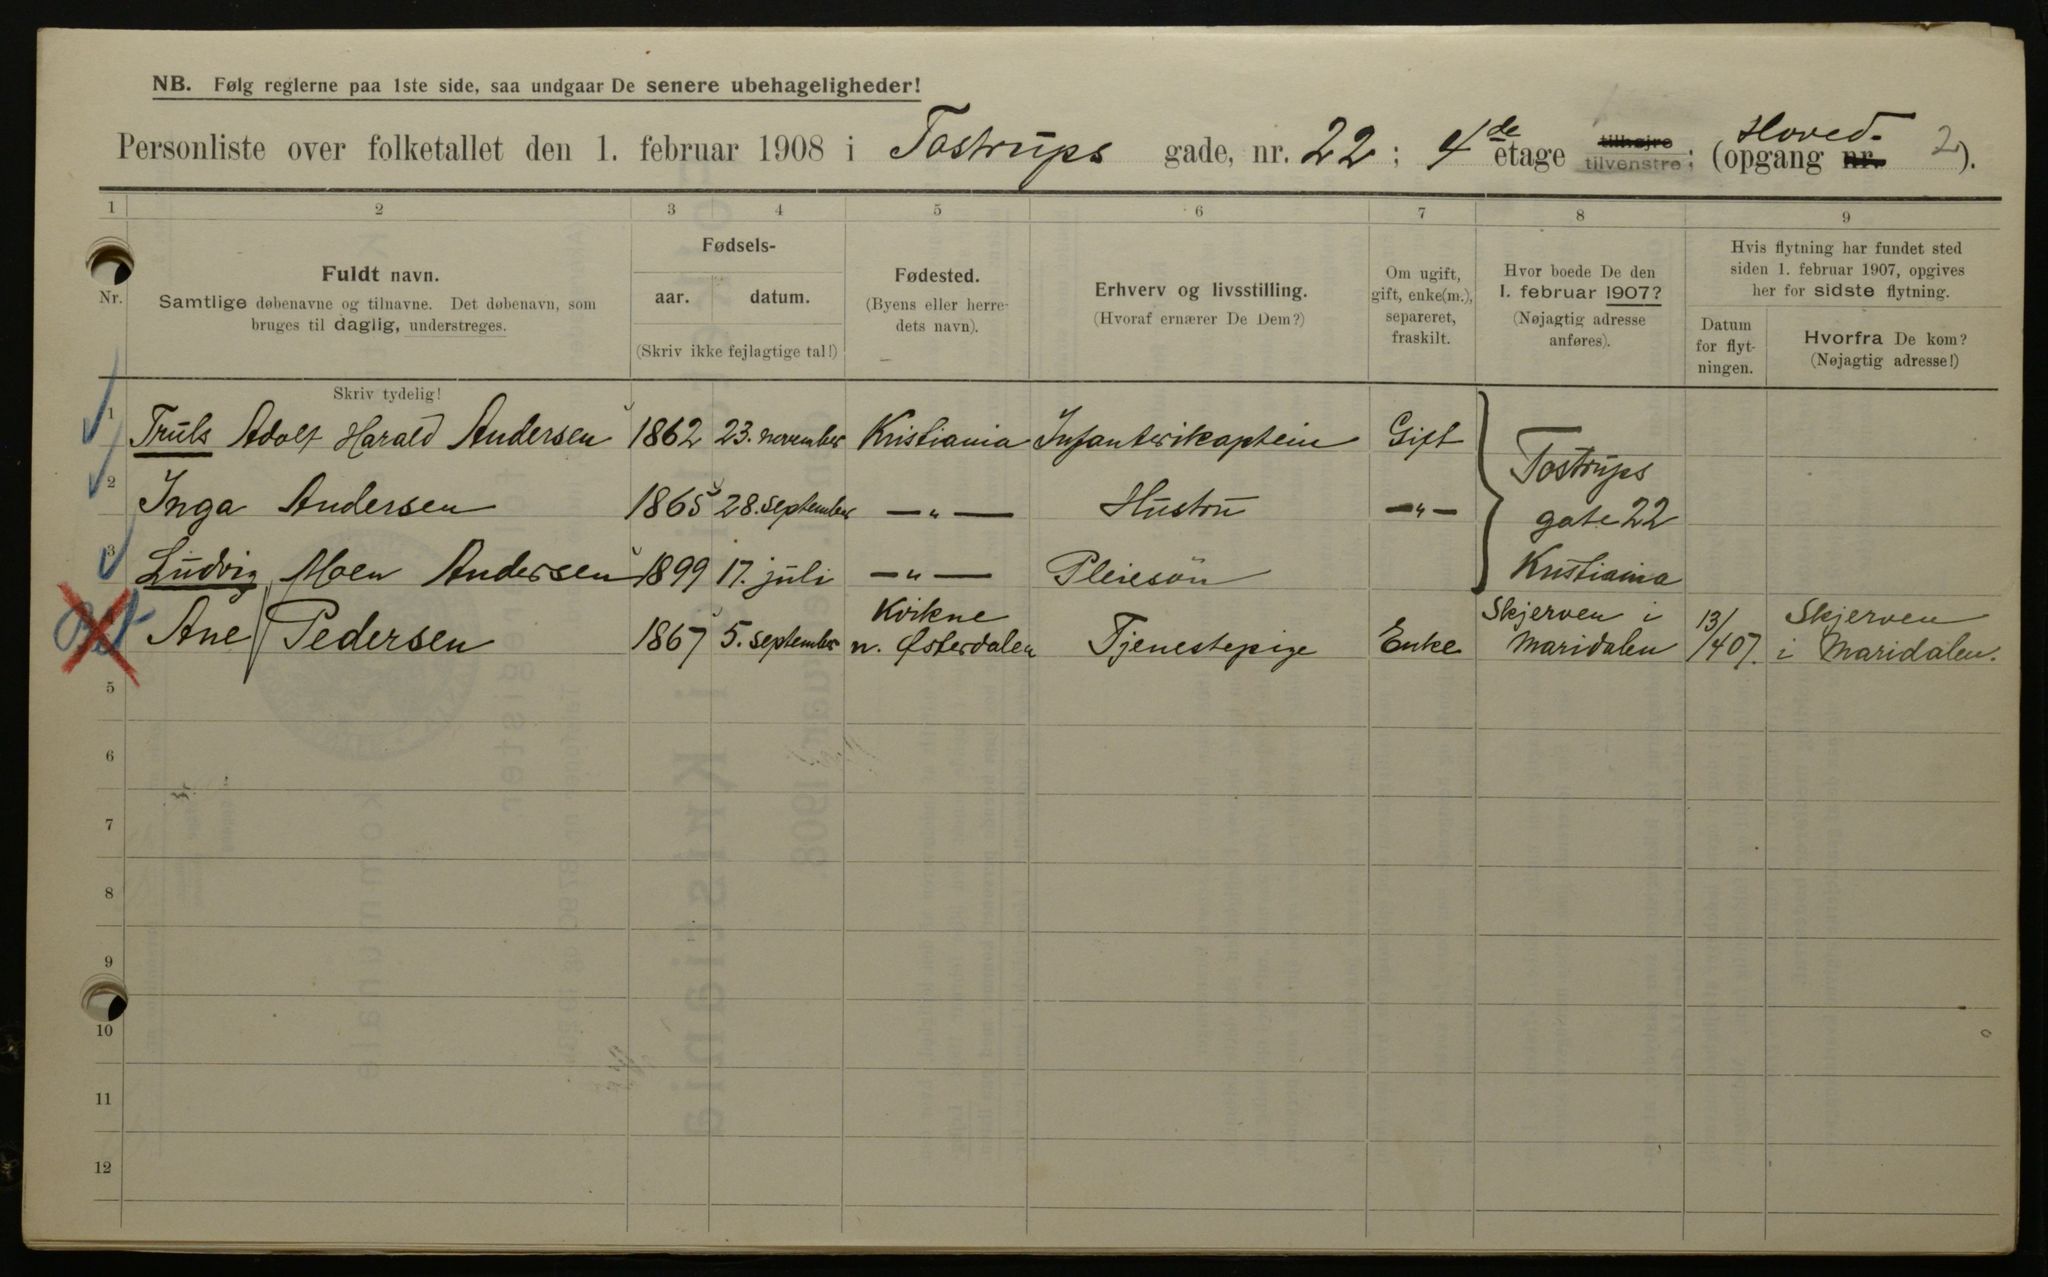 NB. Følg reglerne paa 1ste side, saa undgaar De senere ubehageligheder!
Personliste over folketallet den 1. februar 1908 i Tostrups gade, nr. 22; 4de etage tilhøjre tilvenstre; (Hoved- opgang nr. 2).
1 2 3 4 5 6 7 8 9
Nr.
Fuldt navn.
Samtlige døbenavne og tilnavne. Det døbenavn, som
bruges til daglig, understreges.
Fødsels-
aar. datum.
(Skriv ikke fejlagtige tal!)
Fødested.
(Byens eller herre-
dets navn).
Erhverv og livsstilling.
(Hvoraf ernærer De Dem?)
Om ugift,
gift, enke(m.),
separeret,
fraskilt.
Hvor boede De den
1. februar 1907?
(Nøjagtig adresse
anføres).
Hvis flytning har fundet sted
siden 1. februar 1907, opgives
her for sidste flytning.
Datum
for flyt-
ningen.
Hvorfra De kom?
(Nøjagtig adresse!)
Skriv tydelig!
1 Truls Adolf Harald Andersen 1862 23. november Kristiania Infanterikaptein Gift
Tostrups
2 Inga Andersen 1865 28. september —„— Hustru —„—
gate 22
3 Ludvig Moen Andersen 1899 17. juli —„— Pleiesön Kristiania
Kvikne Skjerven i 13/ Skjerven
Ane Pedersen 1867 5. september n. Østerdalen Tjenestepige Enke Maridalen /4 07. i Maridalen.
5
6
7
8
9
10
11
12